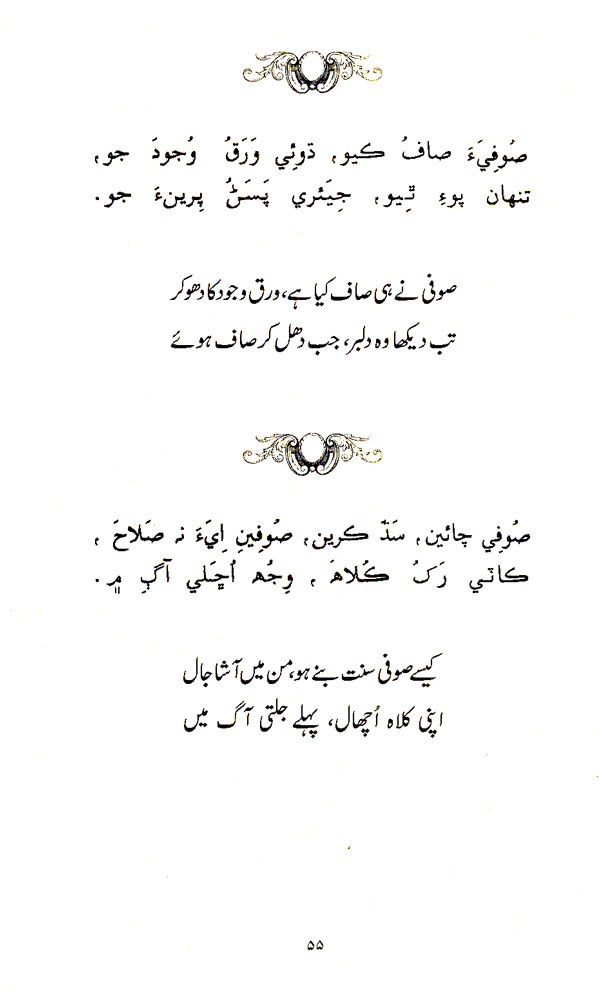 صُوفِيَءَ صافُ ڪيو، ڌوئِي وَرَقُ وُجودَ جو،
تنهان پوءِ ٿِيو، جِيَئري پَسَڻُ پِرينءَ جو.
صوفی نے ہی صاف کیا ہے، ورق وجود کا دھو کر
تب دیکھا وہ دلبر، جب دھل کر صاف ہوئے
صُوفِي چائين، سَڌَ ڪرين، صُوفِينِ اِيَءَ نہ صَلاحَ ،
ڪاٽي رَکُ ڪُلاھَ ، وِجُھ اُڇَلي آڳِ ۾.
کیسے صوفی سنت بنے ہو، من میں آشا جال
اپنی کلاہ اُچھال، پہلے جلتی آگ میں
۵۵